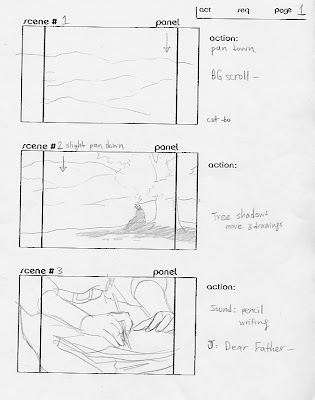 act seq page 1
scene # 1 panel
action:
pan down
BG scroll -
cut to
scene # 2 slight pan down panel
action:
Tree shadows
move 3 drawings
scene # 3 panel
action:
Sound: pencil
writing
J: Dear Father -